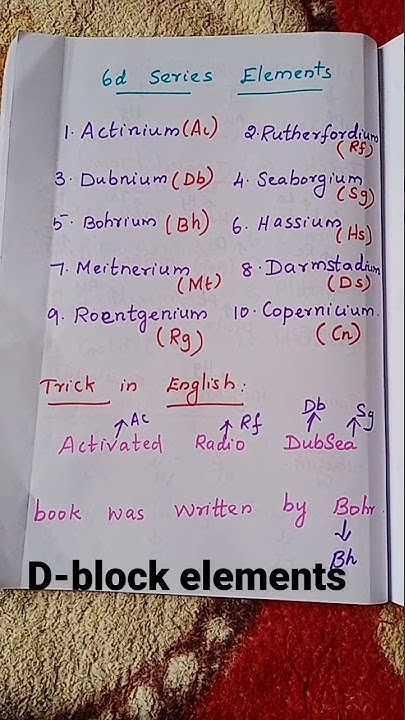 6d Series Elements
1. Actinium (Ac) 2. Rutherfordium (Rf)
3. Dubnium (Db) 4. Seaborgium (Sg)
5. Bohrium (Bh) 6. Hassium (Hs)
7. Meitnerium (Mt) 8. Darmstadium (Ds)
9. Roentgenium (Rg) 10. Copernicium. (Cn)
Trick in English:
Ac Rf Db Sg
Activated Radio DubSea
book was written by Bohr.
Bh
D-block elements